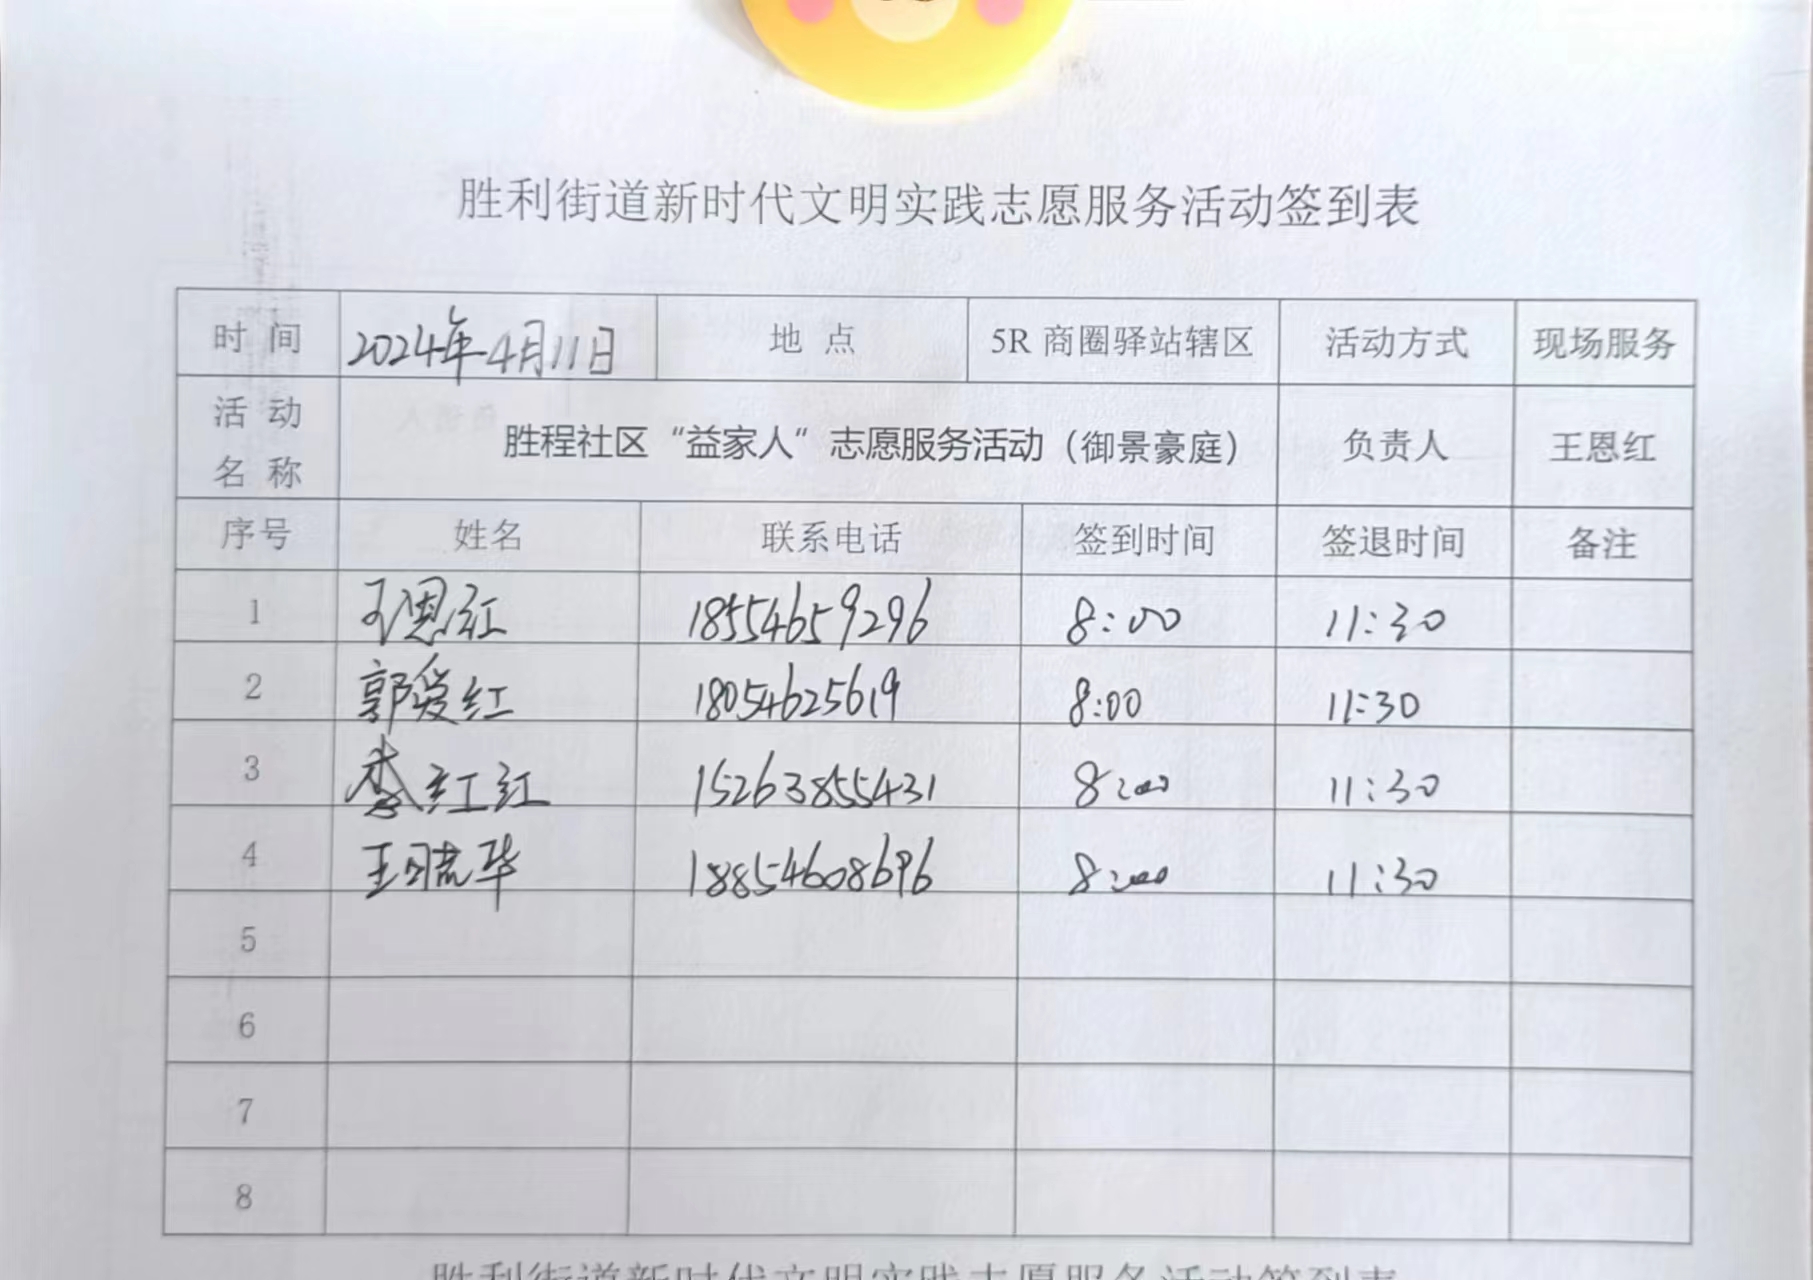 胜利街道新时代文明实践志愿服务活动签到表
时 间 2024年4月11日 地 点 5R 商圈驿站辖区 活动方式 现场服务
活 动 名 称 胜程社区“益家人”志愿服务活动（御景豪庭） 负责人 王恩红
序号 姓名 联系电话 签到时间 签退时间 备注
1 王恩红 18554659296 8:00 11:30
2 郭爱红 18054625619 8:00 11:30
3 李红红 15263855431 8:00 11:30
4 王晓华 18854608696 8:00 11:30
5
6
7
8
胜利街道新时代文明实践志愿服务活动签到表